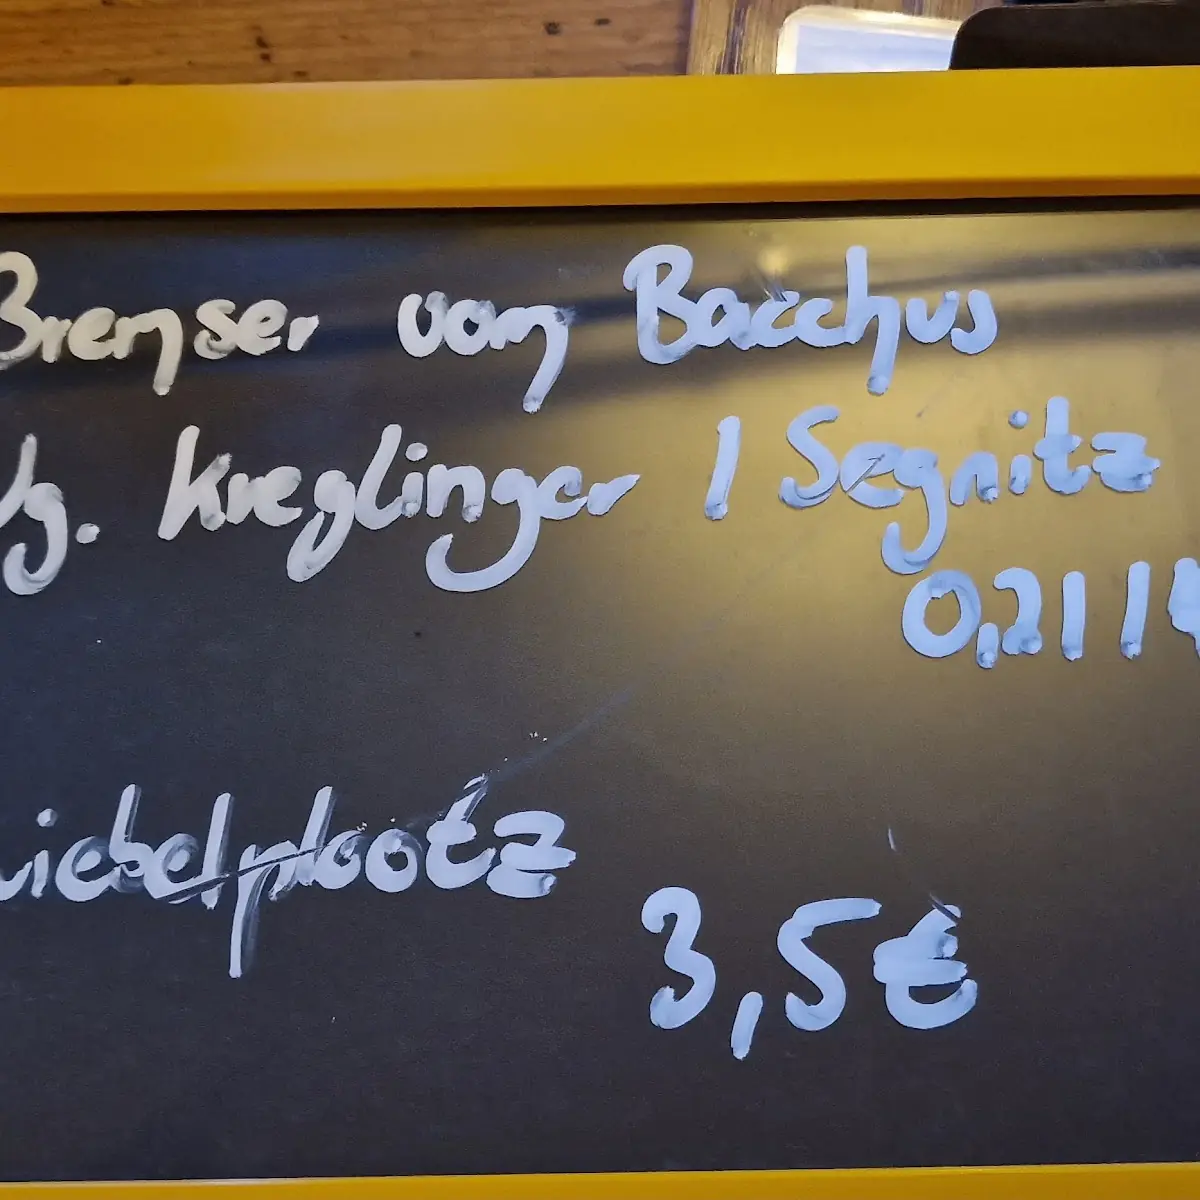 Bremser vom Bacchus
Wg. Krieglinger / Segnitz
0,2l / 4
wiebelplootz
3,5€